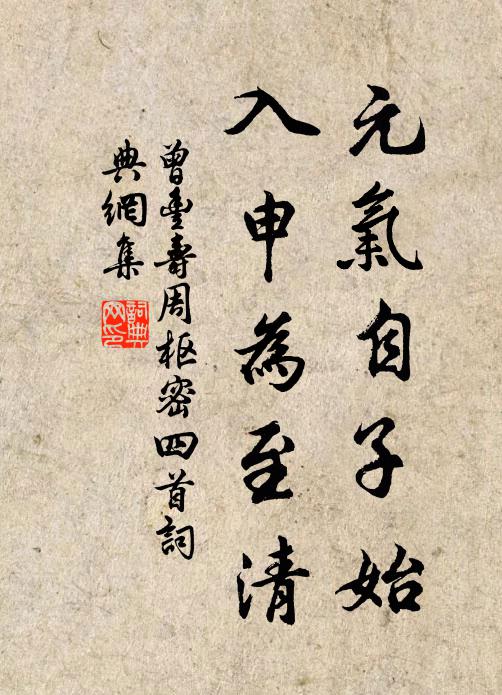 元氣自子始
入申為至清
曾豐壽周樞密四首詞
典網集
詞典
網印